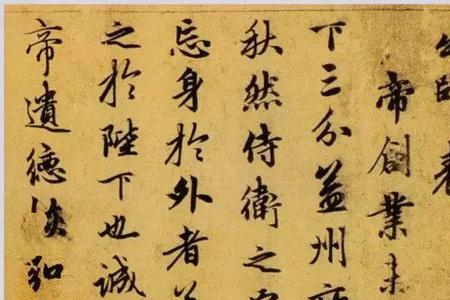 表
帝創業未
下三分益州
秋然侍衛之
忘身於外者
之於陛下也誠
帝遺德恢弘